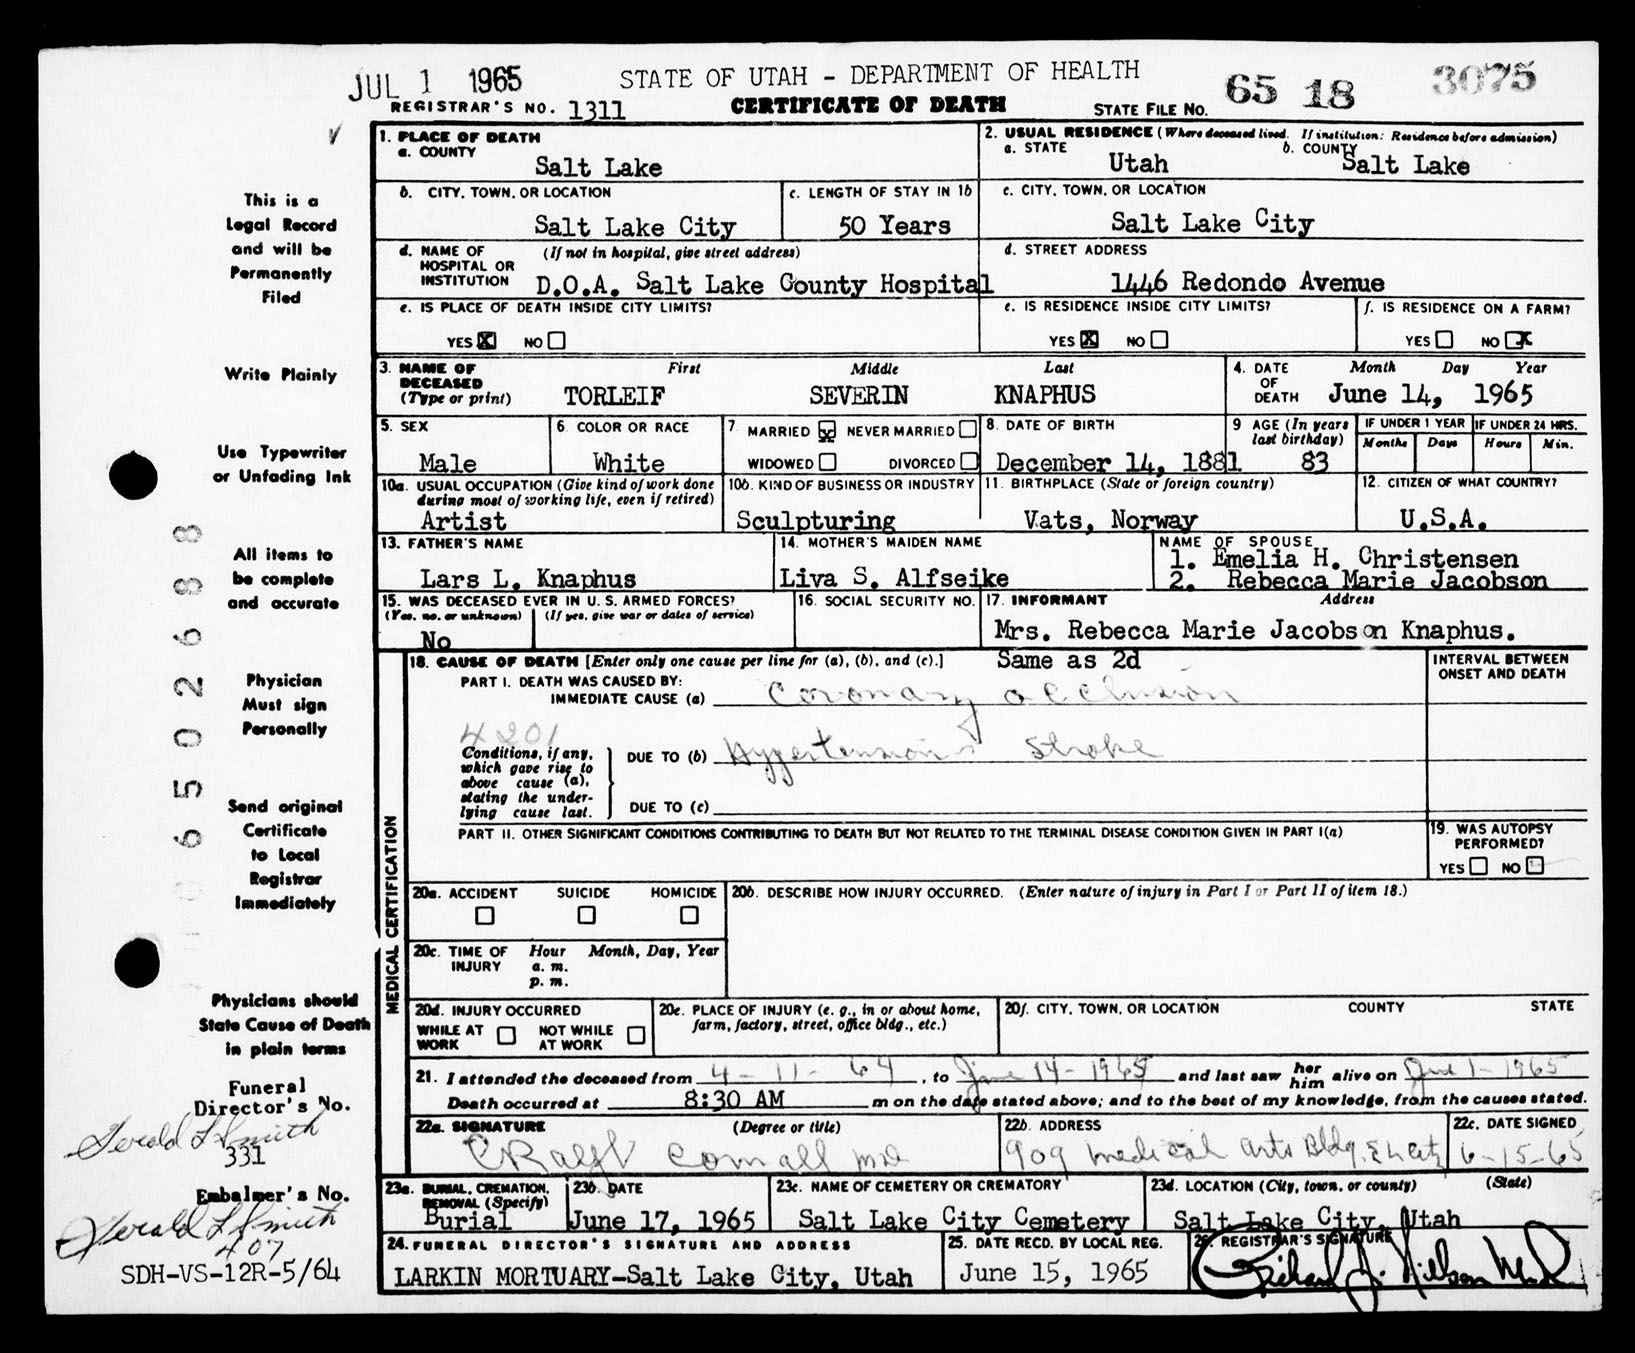 JUL 1 1965
STATE OF UTAH - DEPARTMENT OF HEALTH
65 18 3075
REGISTRAR'S NO. 1311
CERTIFICATE OF DEATH
STATE FILE NO.
1. PLACE OF DEATH
a. COUNTY
Salt Lake
2. USUAL RESIDENCE (Where deceased lived. If institution: Residence before admission)
a. STATE
Utah
b. COUNTY
Salt Lake
b. CITY, TOWN, OR LOCATION
Salt Lake City
c. LENGTH OF STAY IN 1b
50 Years
c. CITY, TOWN, OR LOCATION
Salt Lake City
d. NAME OF HOSPITAL OR INSTITUTION
(If not in hospital, give street address)
D.O.A. Salt Lake County Hospital
d. STREET ADDRESS
1446 Redondo Avenue
e. IS PLACE OF DEATH INSIDE CITY LIMITS?
YES X NO
e. IS RESIDENCE INSIDE CITY LIMITS?
YES X NO
f. IS RESIDENCE ON A FARM?
YES NO X
3. NAME OF DECEASED (Type or print)
First Middle Last
TORLEIF SEVERIN KNAPHUS
4. DATE OF DEATH
Month Day Year
June 14, 1965
5. SEX
Male
6. COLOR OR RACE
White
7. MARRIED X NEVER MARRIED
WIDOWED DIVORCED
8. DATE OF BIRTH
December 14, 1881
9 AGE (In years last birthday)
83
IF UNDER 1 YEAR
Months Days
IF UNDER 24 HRS.
Hours Min.
10a. USUAL OCCUPATION (Give kind of work done during most of working life, even if retired)
Artist
10b. KIND OF BUSINESS OR INDUSTRY
Sculpturing
11. BIRTHPLACE (State or foreign country)
Vats, Norway
12. CITIZEN OF WHAT COUNTRY?
U.S.A.
13. FATHER'S NAME
Lars L. Knaphus
14. MOTHER'S MAIDEN NAME
Liva S. Alfseike
NAME OF SPOUSE
1. Emelia H. Christensen
2. Rebecca Marie Jacobson
15. WAS DECEASED EVER IN U. S. ARMED FORCES?
(Yes, no, or unknown) (If yes, give war or dates of service)
No
16. SOCIAL SECURITY NO.
17. INFORMANT Address
Mrs. Rebecca Marie Jacobson Knaphus.
Same as 2d
MEDICAL CERTIFICATION
18. CAUSE OF DEATH [Enter only one cause per line for (a), (b), and (c).]
PART I. DEATH WAS CAUSED BY:
IMMEDIATE CAUSE (a) Coronary occlusion
INTERVAL BETWEEN ONSET AND DEATH
4201
Conditions, if any, which gave rise to above cause (a), stating the underlying cause last.
DUE TO (b) Hypertension Stroke
DUE TO (c)
PART II. OTHER SIGNIFICANT CONDITIONS CONTRIBUTING TO DEATH BUT NOT RELATED TO THE TERMINAL DISEASE CONDITION GIVEN IN PART I(a)
19. WAS AUTOPSY PERFORMED?
YES NO
20a. ACCIDENT SUICIDE HOMICIDE
20b. DESCRIBE HOW INJURY OCCURRED. (Enter nature of injury in Part I or Part II of item 18.)
20c. TIME OF INJURY
Hour Month, Day, Year
a. m.
p. m.
20d. INJURY OCCURRED
WHILE AT WORK NOT WHILE AT WORK
20e. PLACE OF INJURY (e. g., in or about home, farm, factory, street, office bldg., etc.)
20f. CITY, TOWN, OR LOCATION COUNTY STATE
21. I attended the deceased from 4-11-64, to June 14-1965 and last saw her him alive on June 1-1965
Death occurred at 8:30 AM m on the date stated above; and to the best of my knowledge, from the causes stated.
22a. SIGNATURE (Degree or title)
C Ralph Cornall MD
22b. ADDRESS
909 Medical Arts Bldg. S L City
22c. DATE SIGNED
6-15-65
23a. BURIAL, CREMATION, REMOVAL (Specify)
Burial
23b. DATE
June 17, 1965
23c. NAME OF CEMETERY OR CREMATORY
Salt Lake City Cemetery
23d. LOCATION (City, town, or county) (State)
Salt Lake City, Utah
24. FUNERAL DIRECTOR'S SIGNATURE AND ADDRESS
LARKIN MORTUARY-Salt Lake City, Utah
25. DATE RECD. BY LOCAL REG.
June 15, 1965
26. REGISTRAR'S SIGNATURE
Richard J. Nilson MD
This is a
Legal Record
and will be
Permanently
Filed
Write Plainly
Use Typewriter
or Unfading Ink
All items to
be complete
and accurate
Physician
Must sign
Personally
Send original
Certificate
to Local
Registrar
Immediately
Physicians should
State Cause of Death
in plain terms
Funeral
Director's No.
Gerald L Smith
331
Embalmer's No.
Gerald L Smith
407
SDH-VS-12R-5/64
6502688